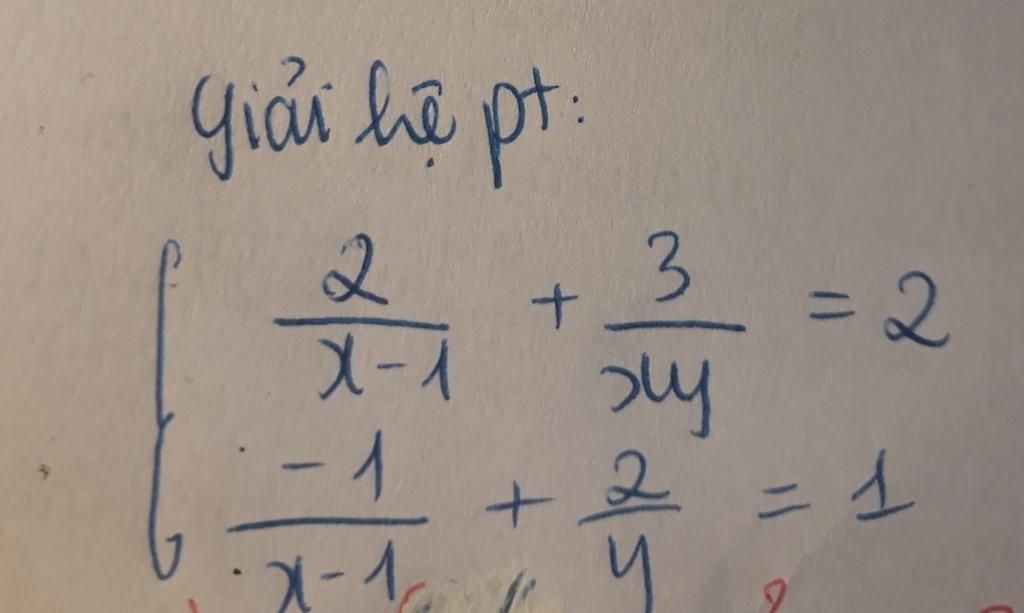 Giải hệ pt:
2/(x-1) + 3/(xy) = 2
-1/(x-1) + 2/y = 1